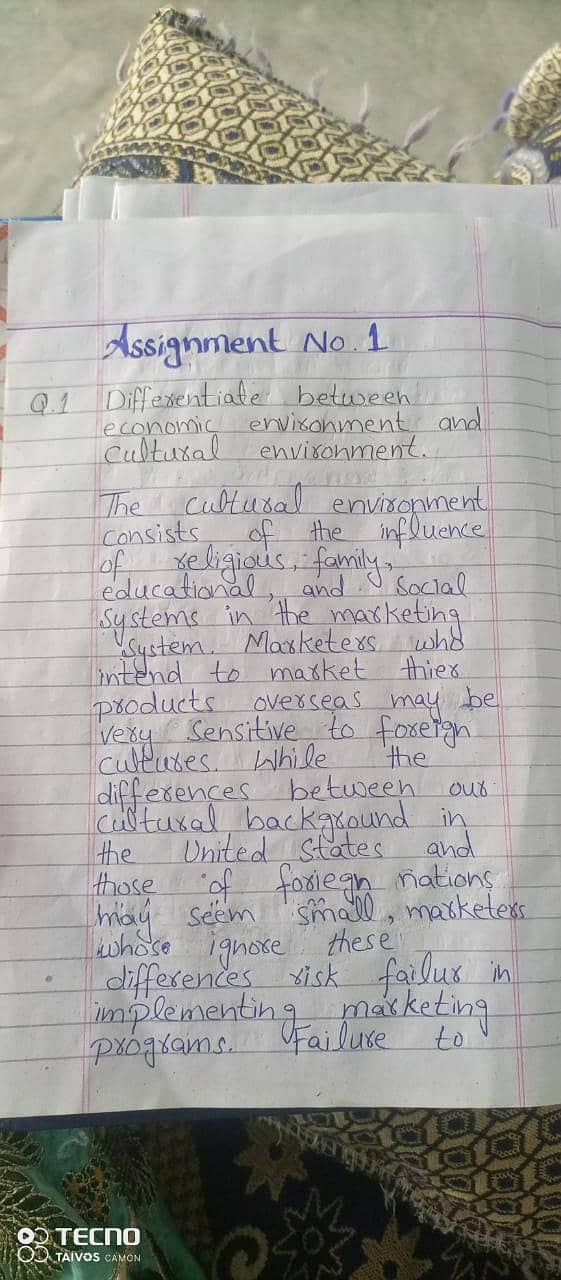 Assignment No. 1
Q.1 Differentiate between
economic environment and
cultural environment.
The cultural environment
consists of the influence
of religious, family,
educational, and social
systems in the marketing
system. Marketers who
intend to market thier
products overseas may be
very sensitive to foreign
cultures. While the
differences between our
cultural background in
the United States and
those of foriegn nations
may seem small, marketers
whose ignore these
differences risk failur in
implementing marketing
programs. Failure to
TECNO
TAIVOS CAMON